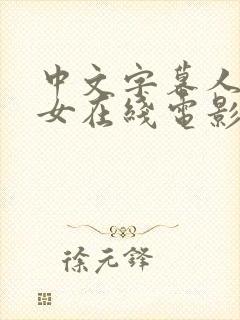 中文字幕人
女在线电影
徐元锋